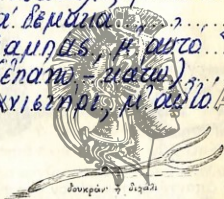 α δεμάτια.........
άμπας, μ' αυτο
έπαπο-κατω)...
χνιστηρι, μ' αυτο
δουκράν' ἢ διχάλι